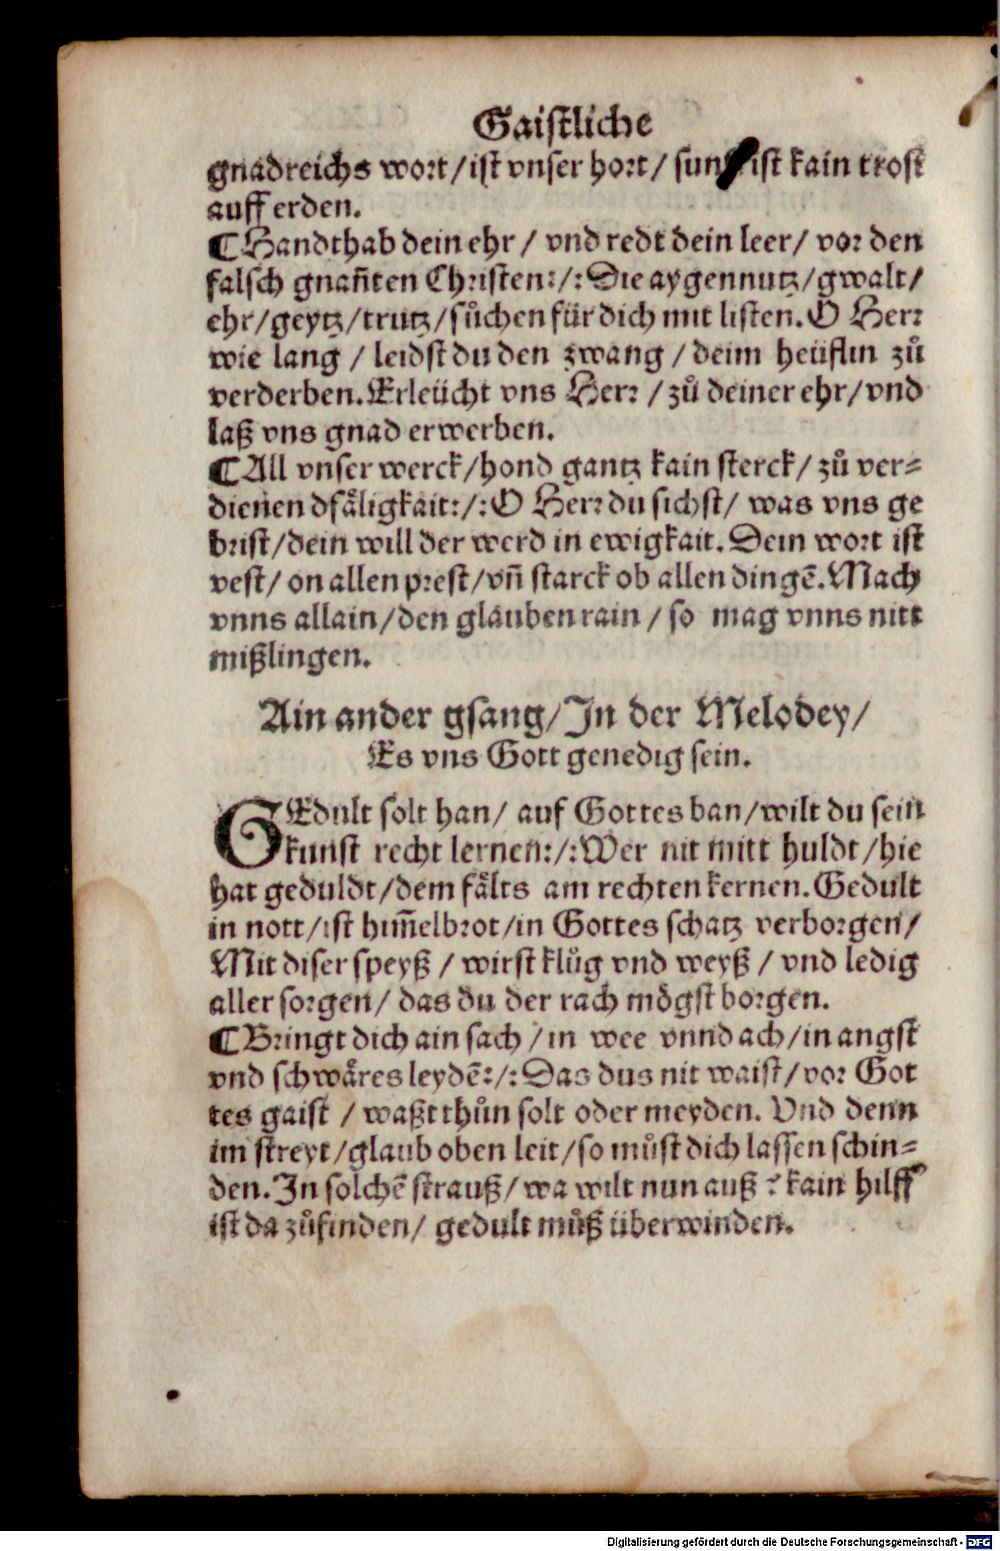 Gaistliche
gnadreichs wort/ist vnser hort/ ist kain trost
auff erden.
¶ Handthab dein ehr / vnd redt dein leer/ vor den
falsch gnañten Christen:/:Die aygennutz/gwalt/
ehr/geytz/trutz/sůchen für dich mit listen. O Herr
wie lang / leidst du den zwang / deim heüflin zů
verderben. Erleücht vns Herr / zů deiner ehr/vnd
laß vns gnad erwerben.
¶ All vnser werck/hond gantz kain sterck/ zů ver⸗
dienen dsäligkait:/:O Herr du sichst/ was vns ge
brist/dein will der werd in ewigkait. Dein wort ist
vest/ on allen prest/vñ starck ob allen dingē. Mach
vnns allain/den glauben rain / so mag vnns nitt
mißlingen.
Ain ander gsang/In der Melodey/
Es vns Gott genedig sein.
GEdult solt han/ auf Gottes ban/wilt du sein
kunst recht lernen:/:Wer nit mitt huldt/hie
hat geduldt/dem fälts am rechten kernen. Gedult
in nott/ist him̃elbrot/in Gottes schatz verborgen/
Mit diser speyß / wirst klůg vnd weyß / vnd ledig
aller sorgen/ das du der rach mögst borgen.
¶ Bringt dich ain sach / in wee vnnd ach/in angst
vnd schwäres leydē:/:Das dus nit waist/vor Got
tes gaist / waßt thůn solt oder meyden. Vnd denn
im streyt/glaub oben leit/so můst dich lassen schin⸗
den. In solchē strauß/wa wilt nun auß? kain hilff
ist da zůfinden/ gedult můß überwinden.
Digitalisierung gefördert durch die Deutsche Forschungsgemeinschaft - DFG